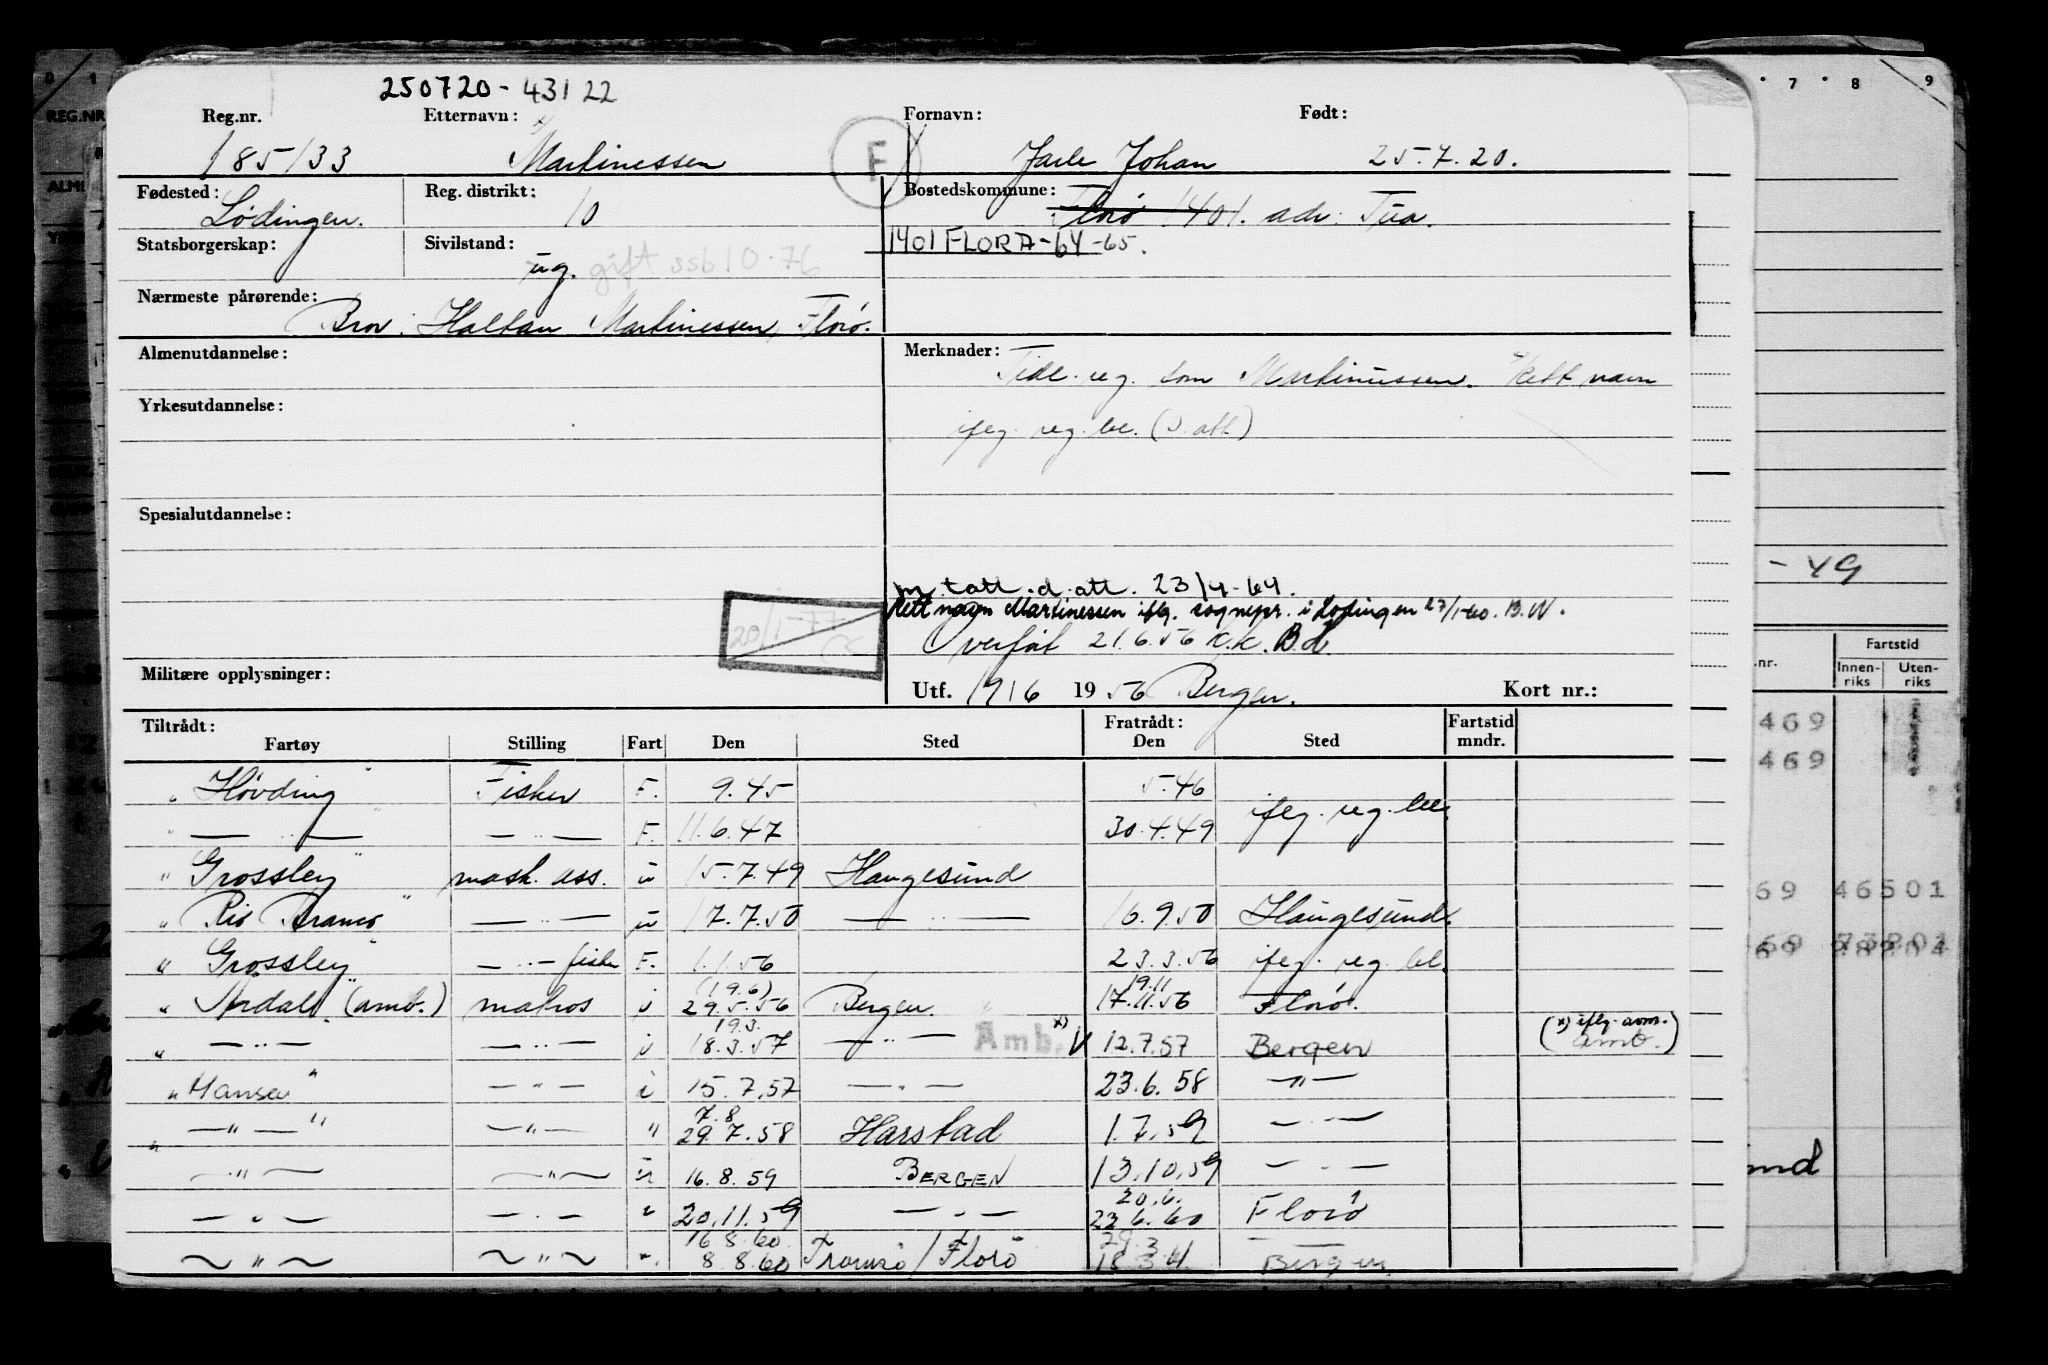 250720-43122
Reg.nr. Etternavn: Fornavn: Født:
185133 Martinessen F Jarle Johan 25.7.20.
Fødested: Reg. distrikt: Bostedskommune:
Lødingen. 10 Florø 1401. adr: Tua.
Statsborgerskap: Sivilstand: 1401 FLORA-64-65.
ug. gift 10.76
Nærmeste pårørende:
Bror: Halfdan Martinessen, Florø.
Almenutdannelse: Merknader: Tidl. reg. som Martinussen. Rett navn
Yrkesutdannelse: iflg. reg. bl. (D.att.)
Spesialutdannelse:
m t att. d. att. 23/4-64.
Rett navn Martinessen iflg. sognepr. i Lødingen 27/1-60. B.W.
20/1-77 Overført 21.6.56 K.K. B.d.
Militære opplysninger: Utf. 19/6 1956 Bergen. Kort nr.:
Tiltrådt: Fratrådt: Fartstid
Fartøy Stilling Fart Den Sted Den Sted mndr.
"Høvding" Fisker F. 9.45 5.46
" — " — — " — F. 11.6.47 30.4.49 iflg. reg. bl.
"Grossley" mask. ass. u 15.7.49 Haugesund
"Rio Branco" — " — u 17.7.50 — " — 16.9.50 Haugesund.
"Grossley" — " — fisker F. 1.1.56 23.3.56 iflg. reg. bl.
(19.6) 19.11
"Årdal" (amb.) matros i 29.5.56 Bergen. 17.11.56 Florø.
19.3. x) iflg. avm.
" — " — — " — i 18.3.57 — " — Amb. x) V 12.7.57 Bergen ( amb. )
"Hansa" — " — i 15.7.57 — " — 23.6.58 — " —
7.8
" — " — " — " — " 29.7.58 Harstad 1.7.59 — " —
— " — — " — 16.8.59 BERGEN 13.10.59 — " —
20.6.
— " — — " — " 20.11.59 — " — 22.6.60 Florø
16.8.60. 29.3
— " — — " — " 8.8.60 Tromsø/Florø 18.3.61 Bergen
0 1
REG.NR
7 8 9
- 49
.nr. Fartstid
Innen- Uten-
riks riks
469
469
69 46501
69